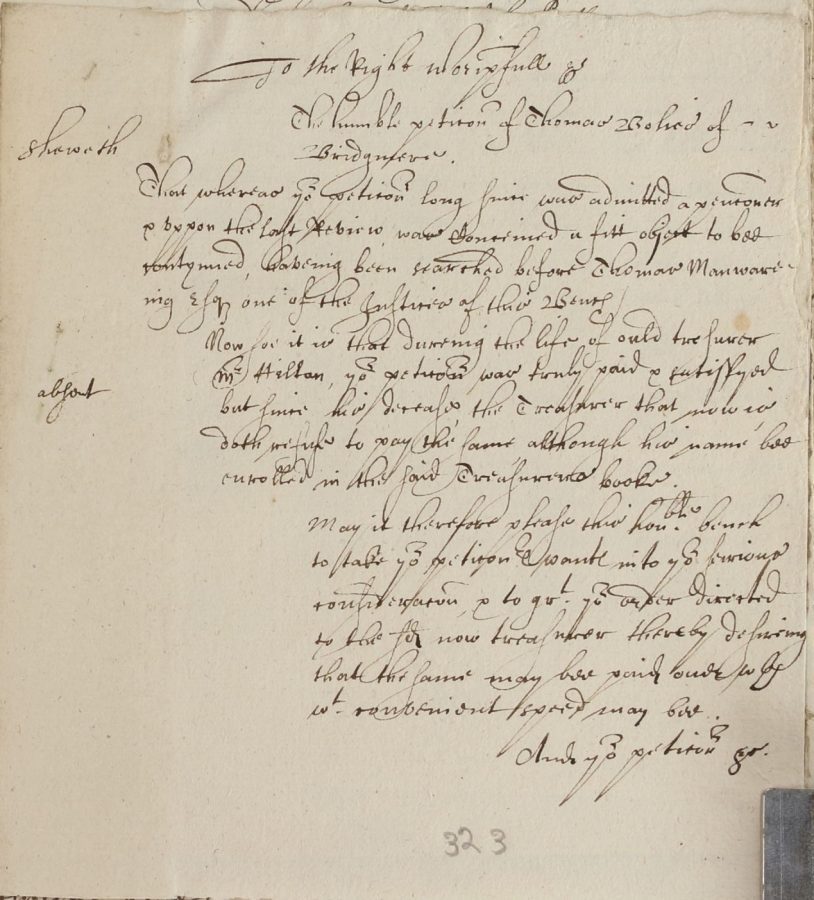 To the Right Wor:ipfull &c
The humble peticon of Thomas of
Bridgmere.
sheweth
That whereas yor peticonr long since was admitted a pencioner
& uppon the last Review was Conceined a fitt object to bee
contynued, haveing been searched before Thomas Manware-
ing Esqr one of the Justices of this Bench
Now soe it is that dureing the life of ould tresurer
Mr Hilton, yor peticonr was truly paid & satisfyed
but since his decease the Treasurer that now is
doth refuse to pay the same although his name bee
enrolled in the said Treasurers booke.
absent
May it therefore please this honble bench
to take yor peticonrs wants into yor serious
consideracon, & to grt yor order directed
to the sd now treasurer thereby desireing
that the same may bee paid
wt convenient speed may bee.
And yor peticonr &c.
323